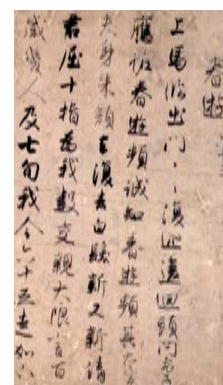 春遊
上馬臨出門〻〻復逡巡迴頭問妻
應訝春遊頻誠知春遊頻其奈老
大身朱顏去復去白髮新又新請
君屈十指為我數交親大限言百
歲幾人及七旬我今六十五走如